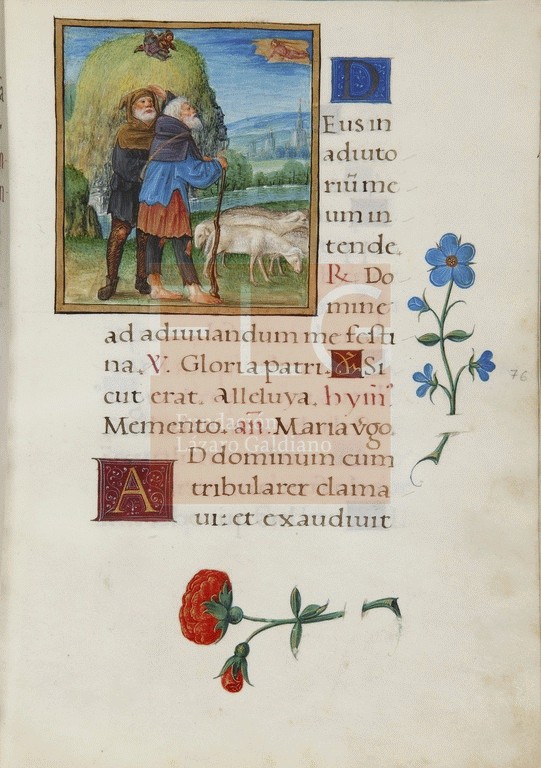 D
Eus in
adiuto
riũ me
um in
tende.
R. Do
mine
ad adiuuandum me festi
na. V. Gloria patri. V. Si
cut erat. Alleluya. hym̃.
Memento. añ. Maria v̾go.
AD dominum cum
tribularer clama
ui: et exaudiuit
76
FLG
Fundación
Lázaro Galdiano